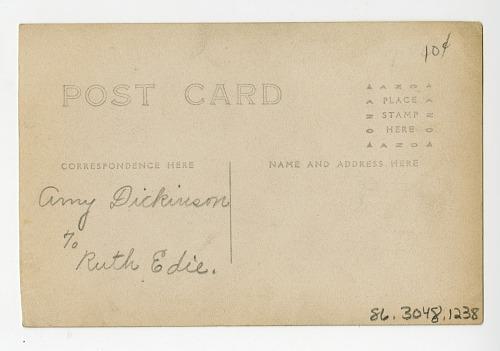 10¢
POST CARD
▲ AZO ▲
PLACE
STAMP
HERE
▲ AZO ▲
CORRESPONDENCE HERE
NAME AND ADDRESS HERE
Amy Dickinson
To
Ruth Edie.
86.3048.1238